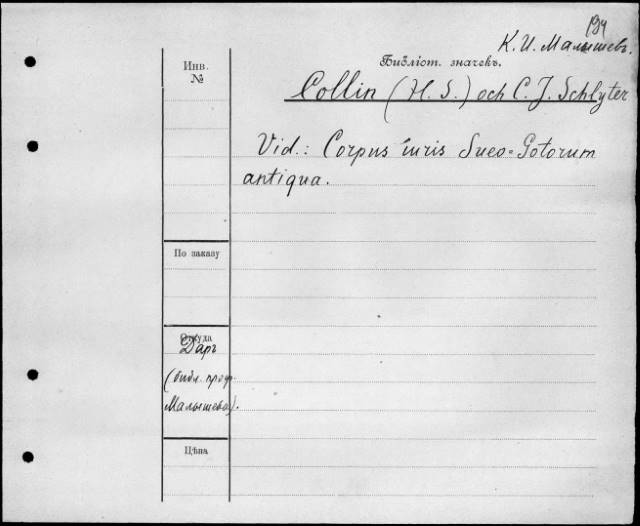 194
К. И. Малышевъ.
Библіот. значекъ.
Инв.
№
Collin (H. S.) och C. J. Schlyter
Vid.: Corpus iuris Sueo-Gotorum
antiqua.
По заказу
Откуда
Даръ
(библ. проф.
Малышева).
Цѣна